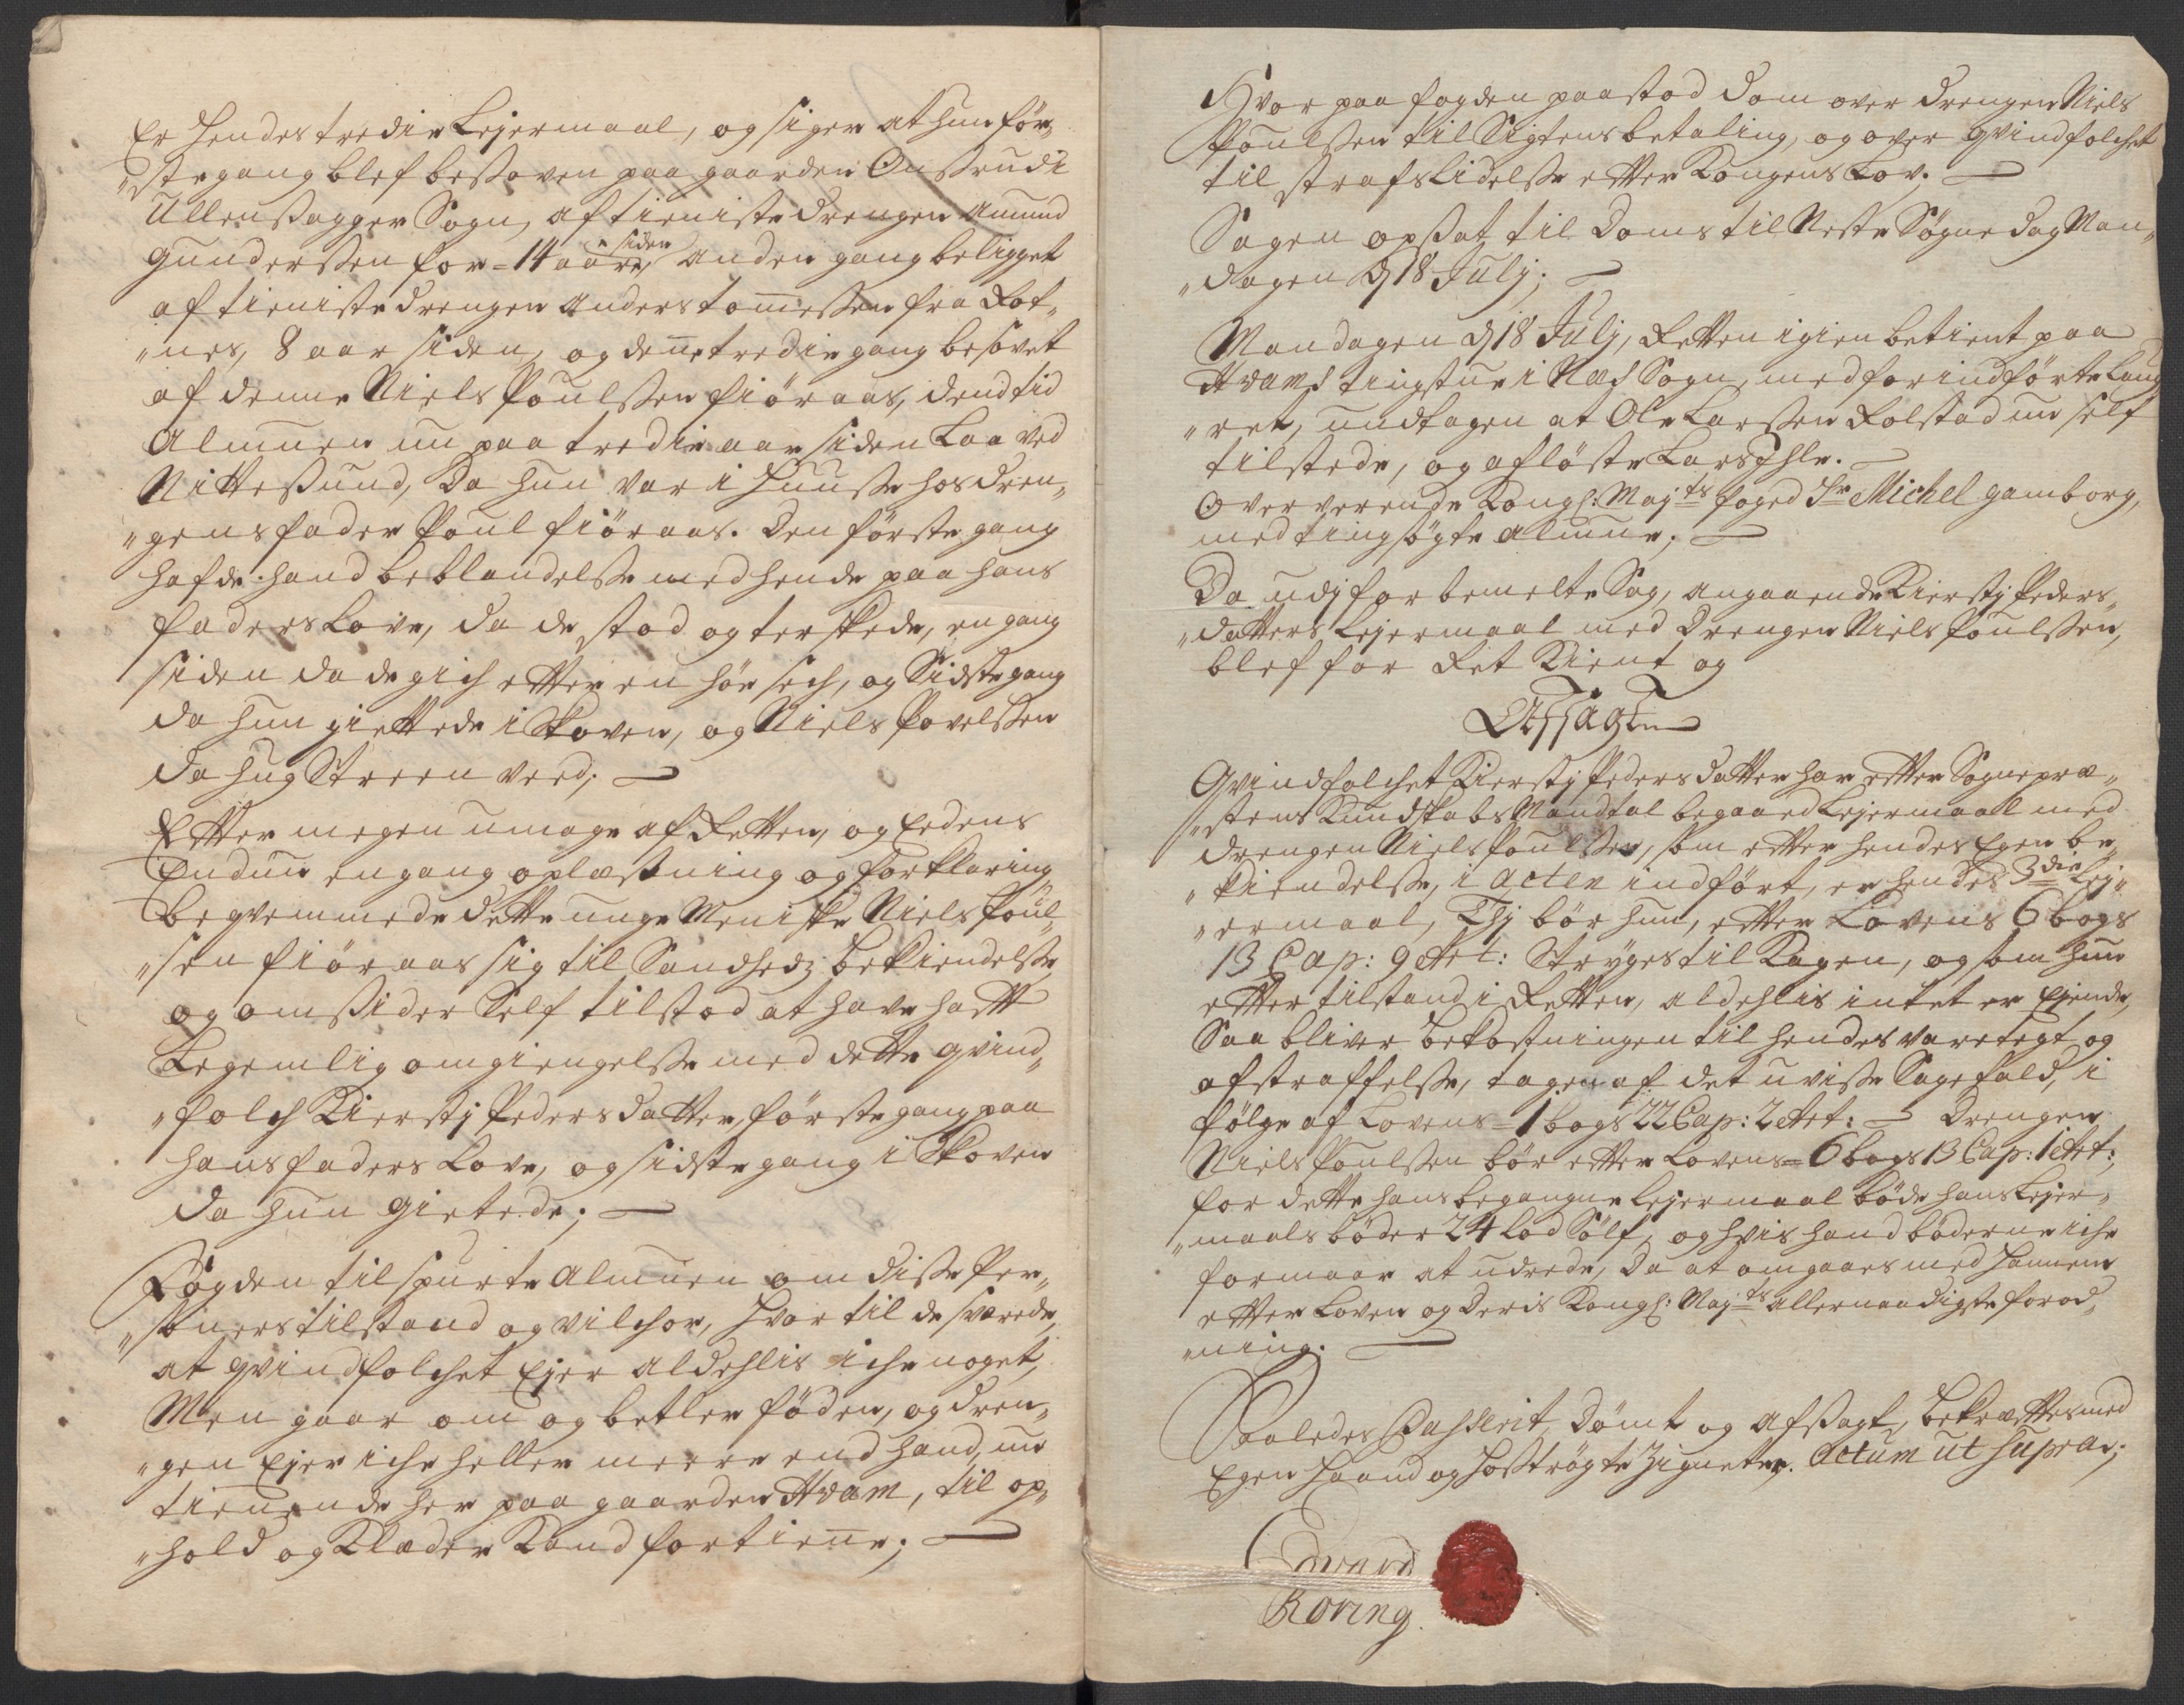 Er hendes tredie Lejermaal, og siger at hun før¸
"ste gang blef besoven paa gaarden Onsrud i
Ullensagger Sogn, af tieniste drengen Amund
Gunderssen for = 14 aars siden anden gang beligget
af tieniste drengen Anders tomessen fra Rot¸
"nes, 8 aar siden, og denne tredie gang besovet
af denne Niels Poulssen fiøraas, dend tid
Almuen nu paa tredie aar siden Laa ved
Nittesund, Da hun var i Huuse hos dren¸
"gens fader Poul fiøraas. Den første gang
hafde hand beblandelsse med hende paa hans
faders Love, da de stod og terskede, en gang
siden da de gich etter en hør sech, og Sidste gang
da hun giettede i skoven, og Niels Povelssen
da hug Streen veed; —
Etter megen umage af Retten, og Eedens
Endnu en gang oplæsning og forklaring
beqvemmede dette unge Meniske Niels Poul¸
"sen fiøraas sig til Sandhedz bekiendelsse
og omsider Self tilstod at have hatt
Legemlig omgiengelsse med dette qvind¸
"folch Kierstj Pedersdatter, første gang paa
hans faders Love, og sidste gang i Skoven
da hun gietede; —
Fogden tilspurte Almuen om disse Per¸
"soners tilstand og vilchor, hvortil de svarede,
at qvindfolchet Ejer aldehlis iche noget,
Men gaar om og betler føden, og dren¸
"gen Ejer iche heller meere end hand, nu
tienende her paa gaarden Hvam, til op¸
"hold og Klæder Kand fortiene; —
Hvor paa fogden paastod dom over drengen Niels
Poulssen til Sigtens betaling, og over qvindfolchet
til strafs lidelsse etter Kongens Lov. —
Sagen opsat til Doms til Neste Søgnedag Man¸
"dagen d 18 Julj; —
Mandagen d 18 Julj, Retten igien betient paa
Hvams tingstue i Næs Sogn, med forindførte Laug¸
"ret, undtagen at Ole Larssen Rolstad nu self
tilstede, og afløste Lars Ihle. —
Oververende Kongl: Majts foged Sr Michel Gamborg,
med tingsøgte Almue; —
Da udj forbemelte Sag, angaaende Kierstj Peders¸
"datters Lejermaal med Drengen Niels Poulssen,
blef for Ret Kient og
Afsagt
Qvindfolchet Kierstj Pedersdatter har etter Sognepræ¸
"stens Kundskabs Mandtal begaaed Lejermaal med
drengen Niels Poulssen, som etter hendes Egen be¸
"kiendelsse, i acten indført, er hendes 3die Lej¸
"ermaal, Thj bør hun, etter Lovens 6 bogs
13 Cap: 9 Art: Stryges til Kagen, og som hun
etter tilstand i Retten, aldehlis intet er Ejende,
Saa bliver bekostningen til hendes varetegt og
afstraffelsse, tagen af det uvisse Sagefald, i
følge af Lovens = 1 bogs 22 Cap: 2 Art: — Drengen
Niels Poulssen bør etter Lovens = 6 bogs 13 Cap: 1 Art:
for dette hans begangne Lejermaal bøde hans Lejer¸
"maals bøder 24 Lod Sølf, og hvis hand bøderne iche
formaar at udrede, Da at omgaaes med hannem
etter Loven og Deris Kongl: Majts allernaadigste forod¸
"ning. —
Saaledes Passerit, Dømt og afsagt, bekræfttes med
Egen haand og hostrøgte Zigneter. Actum ut supra;
Edvard
Roring.